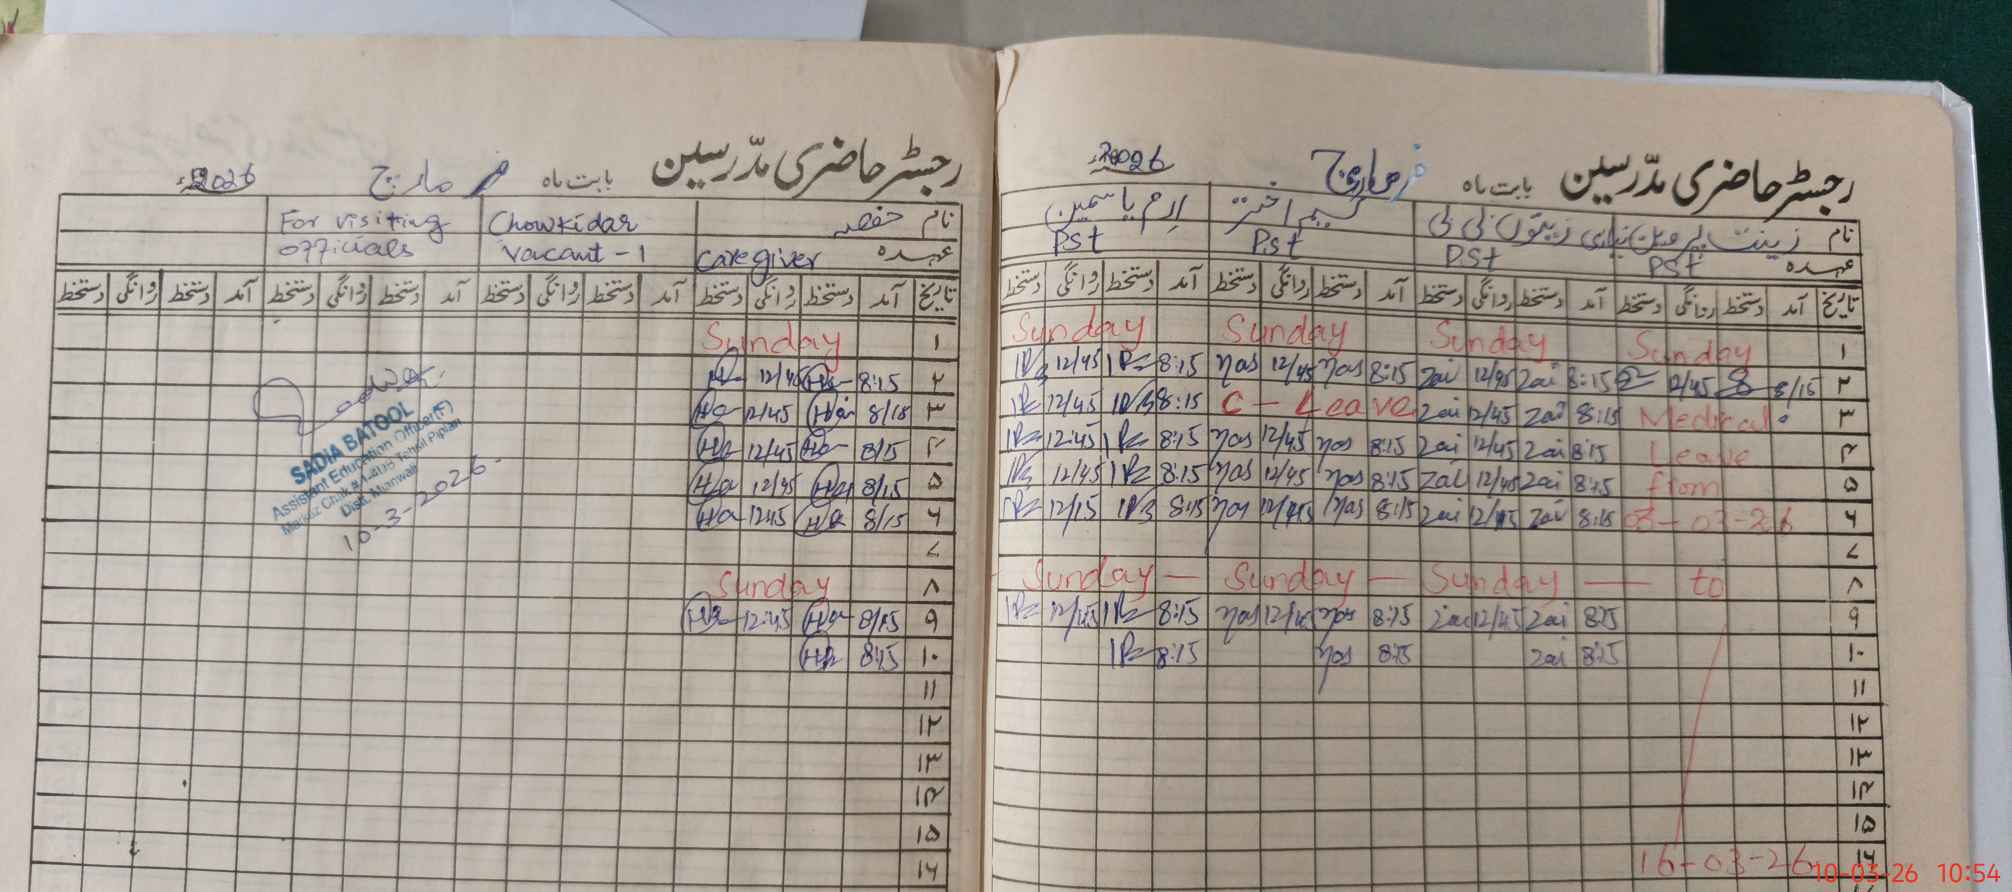 رجسٹر حاضری مدّرسین بابت ماہ مارچ 2026
نام زینت پروین نیازی زیتون بی بی نسیم اختر ارم یاسمین
عہدہ PST PST PST PST
تاریخ آمد دستخط روانگی دستخط آمد دستخط روانگی دستخط آمد دستخط روانگی دستخط آمد دستخط روانگی دستخط
۱ Sunday Sunday Sunday Sunday
۲ 8/15 12/45 8:15 Zai 12/45 Zai 8:15 nas 12/45 nas 8:15 12/45
۳ Medical 8:15 Zai 12/45 Zai C - Leave 8:15 12/45
۴ Leave 8:15 Zai 12/45 Zai 8:15 nas 12/45 nas 8:15 12:45
۵ from 8:15 Zai 12/45 Zai 8:15 nas 12/45 nas 8:15 12/45
۶ 03-03-26 8:15 Zai 12/45 Zai 8:15 nas 12/45 nas 8:15 12/15
۷
۸ to Sunday Sunday Sunday
۹ 8:15 Zai 12/45 Zai 8:15 nas 12/45 nas 8:15 12/45
۱۰ 8:15 Zai 8:15 nas 8:15
۱۱
۱۲
۱۳
۱۴
۱۵
۱۶ 16-03-26
رجسٹر حاضری مدّرسین بابت ماہ مارچ 2026
نام حفصہ Chowkidar For visiting
عہدہ Caregiver Vacant - 1 officials
تاریخ آمد دستخط روانگی دستخط آمد دستخط روانگی دستخط آمد دستخط روانگی دستخط آمد دستخط روانگی دستخط
۱ Sunday
۲ 8:15 Ha 12/45 Ha
۳ 8/15 Ha 12/45 Ha
۴ 8/15 Ha 12/45 Ha
۵ 8/15 Ha 12/45 Ha
۶ 8/15 Ha 12:45 Ha
۷
۸ Sunday
۹ 8/15 Ha 12:45 Ha
۱۰ 8:15 Ha
۱۱
۱۲
۱۳
۱۴
۱۵
۱۶
SADIA BATOOL
Assistant Education Officer (F)
Markaz Chak # Tehsil Piplan
Distt. Mianwali
10-3-2026
10-03-26 10:54